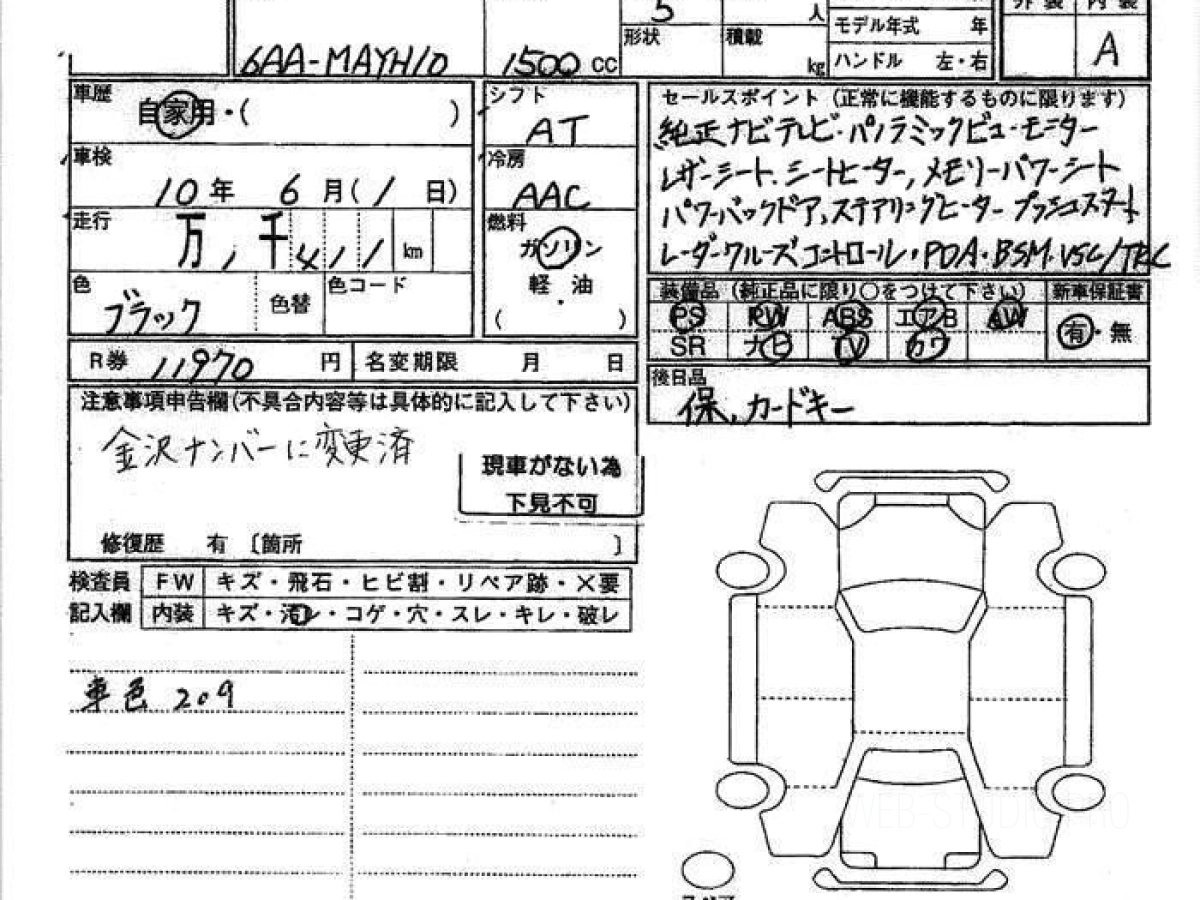 5 人 モデル年式 年
外装 内装
6AA-MAYH10 1500 CC 形状 積載 kg ハンドル 左・右 A
車歴 自家用・( )
シフト AT
セールスポイント (正常に機能するものに限ります)
純正ナビテレビ・パノラミックビューモニター
レザーシート、シートヒーター,メモリーパワーシート
パワーバックドア、ステアリングヒーター プッシュスタート
レーダークルーズコントロール・PDA・BSM.VSC/TRC
車検 10年 6月(1日)
冷房 AAC
走行 万,千4,1 km
燃料 ガソリン
軽・油
( )
色 ブラック 色替 色コード
装備品 (純正品に限り○をつけて下さい) 新車保証書
PS PW ABS エアB AW 有・無
SR ナビ TV カワ
R券 11970 円 名変期限 月 日
後日品
保,カードキー
注意事項申告欄(不具合内容等は具体的に記入して下さい)
金沢ナンバーに変更済
現車がない為
下見不可
修復歴 有 〔箇所 〕
検査員 FW キズ・飛石・ヒビ割・リペア跡・×要
記入欄 内装 キズ・汚レ・コゲ・穴・スレ・キレ・破レ
車色 209
WEB-STUDIO.RO